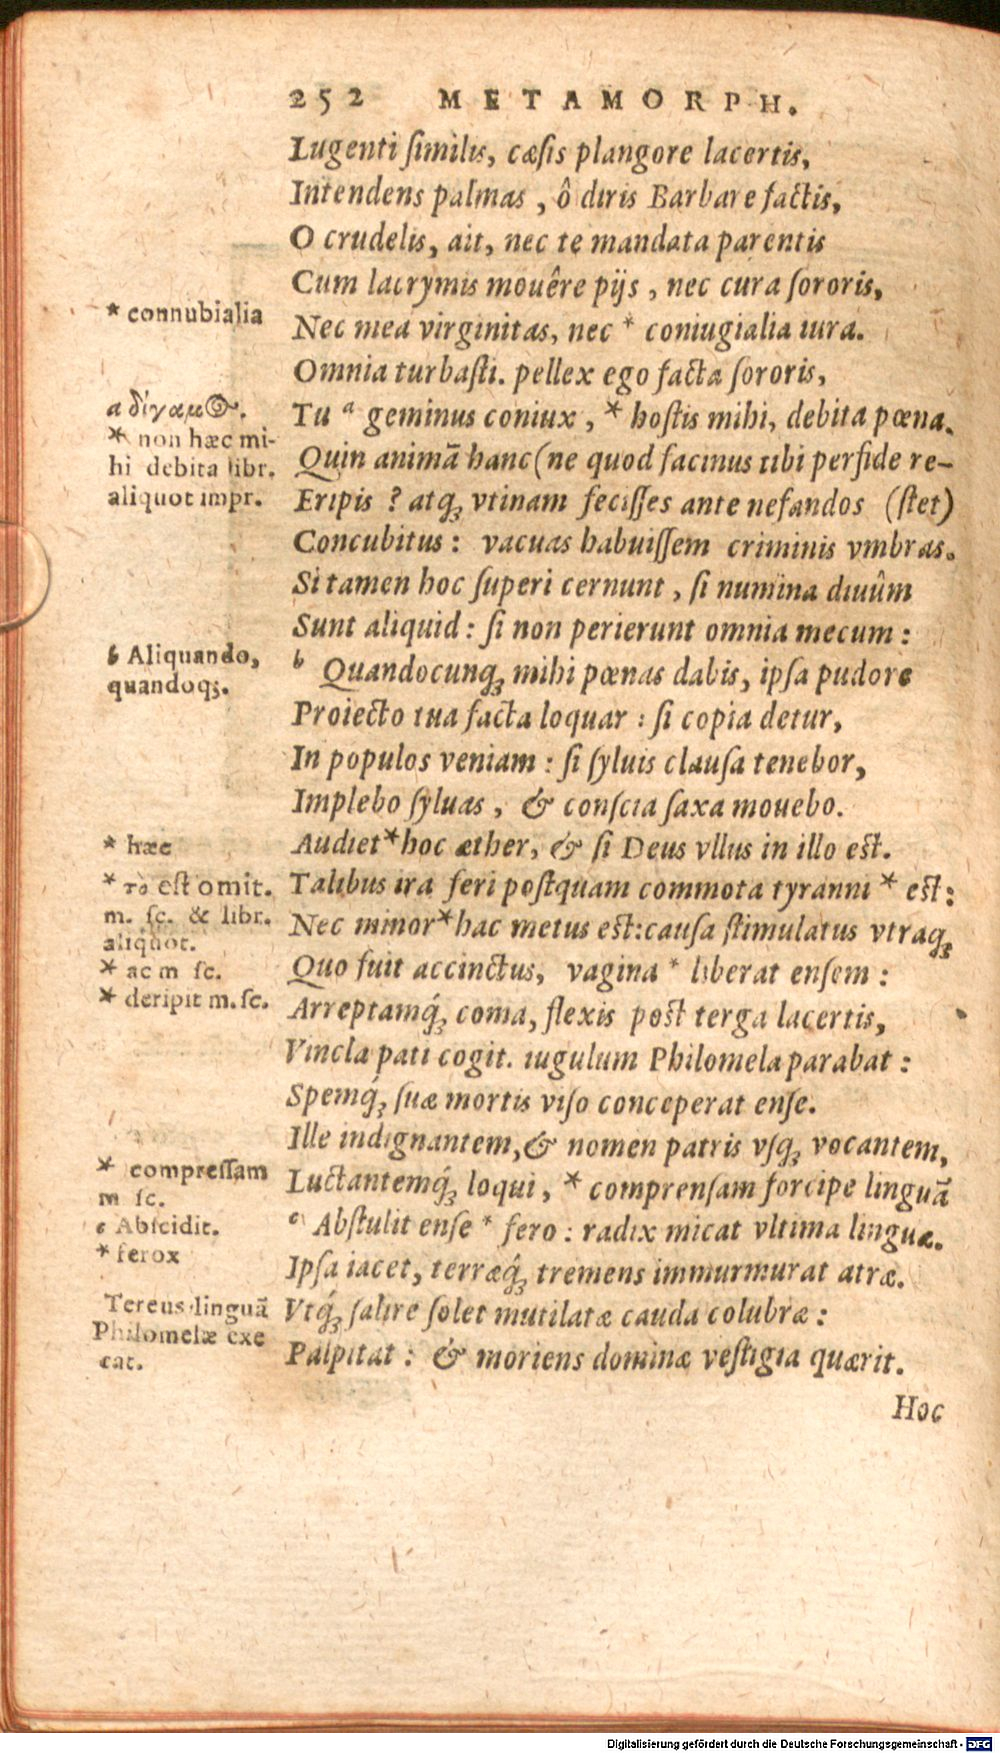 252 METAMORPH.
Lugenti ſimilis, cæſis plangore lacertis,
Intendens palmas, ô diris Barbare factis,
O crudelis, ait, nec te mandata parentis
Cum lacrymis mouêre pijs, nec cura ſororis,
* connubialia
Nec mea virginitas, nec * coniugialia iura.
Omnia turbaſti. pellex ego facta ſororis,
a δίγαμος.
Tu a geminus coniux, * hoſtis mihi, debita pœna.
* non hæc mi-
hi debita libr.
aliquot impr.
Quin animã hanc (ne quod facinus tibi perfide re-
Eripis? atq; vtinam feciſſes ante nefandos (ſtet)
Concubitus: vacuas habuiſſem criminis vmbras.
Si tamen hoc ſuperi cernunt, ſi numina diuûm
Sunt aliquid: ſi non perierunt omnia mecum:
b Aliquando,
quandoq;.
b Quandocunq; mihi pœnas dabis, ipſa pudore
Proiecto tua facta loquar: ſi copia detur,
In populos veniam: ſi ſyluis clauſa tenebor,
Implebo ſyluas, & conſcia ſaxa mouebo.
* hæc
Audiet * hoc æther, & ſi Deus vllus in illo est.
* τὸ est omit.
m. ſc. & libr.
aliquot.
Talibus ira feri poſtquam commota tyranni * eſt:
Nec minor * hac metus est: cauſa ſtimulatus vtraq;
* ac m ſc.
Quo fuit accinctus, vagina * liberat enſem:
* deripit m. ſc.
Arreptamq́; coma, flexis poſt terga lacertis,
Vincla pati cogit. iugulum Philomela parabat:
Spemq́; ſuæ mortis viſo conceperat enſe.
Ille indignantem, & nomen patris vſq; vocantem,
* compreſſam
m ſc.
Luctantemq́; loqui, * comprenſam forcipe linguã
c Abſcidit.
* ferox
c Abſtulit enſe * fero: radix micat vltima linguæ.
Ipſa iacet, terræq́; tremens immurmurat atræ.
Tereus linguã
Philomelæ exe
cat.
Vtq́; ſalire ſolet mutilatæ cauda colubræ:
Palpitat: & moriens dominæ veſtigia quærit.
Hoc
Digitalisierung gefördert durch die Deutsche Forschungsgemeinschaft - DFG